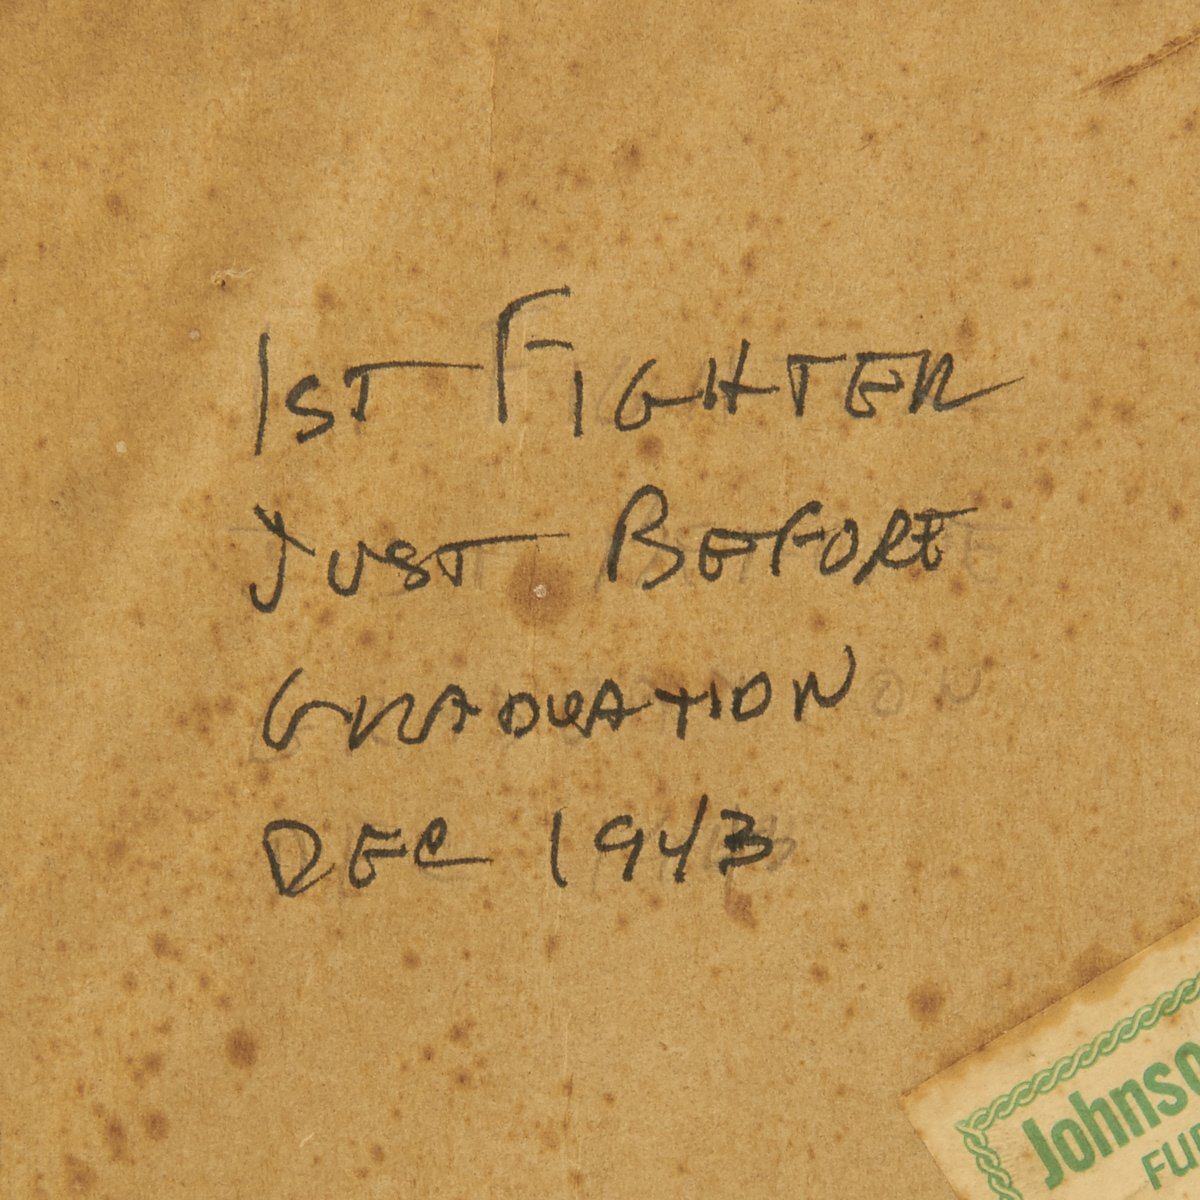 1ST FIGHTER
JUST BEFORE
GRADUATION
DEC 1943